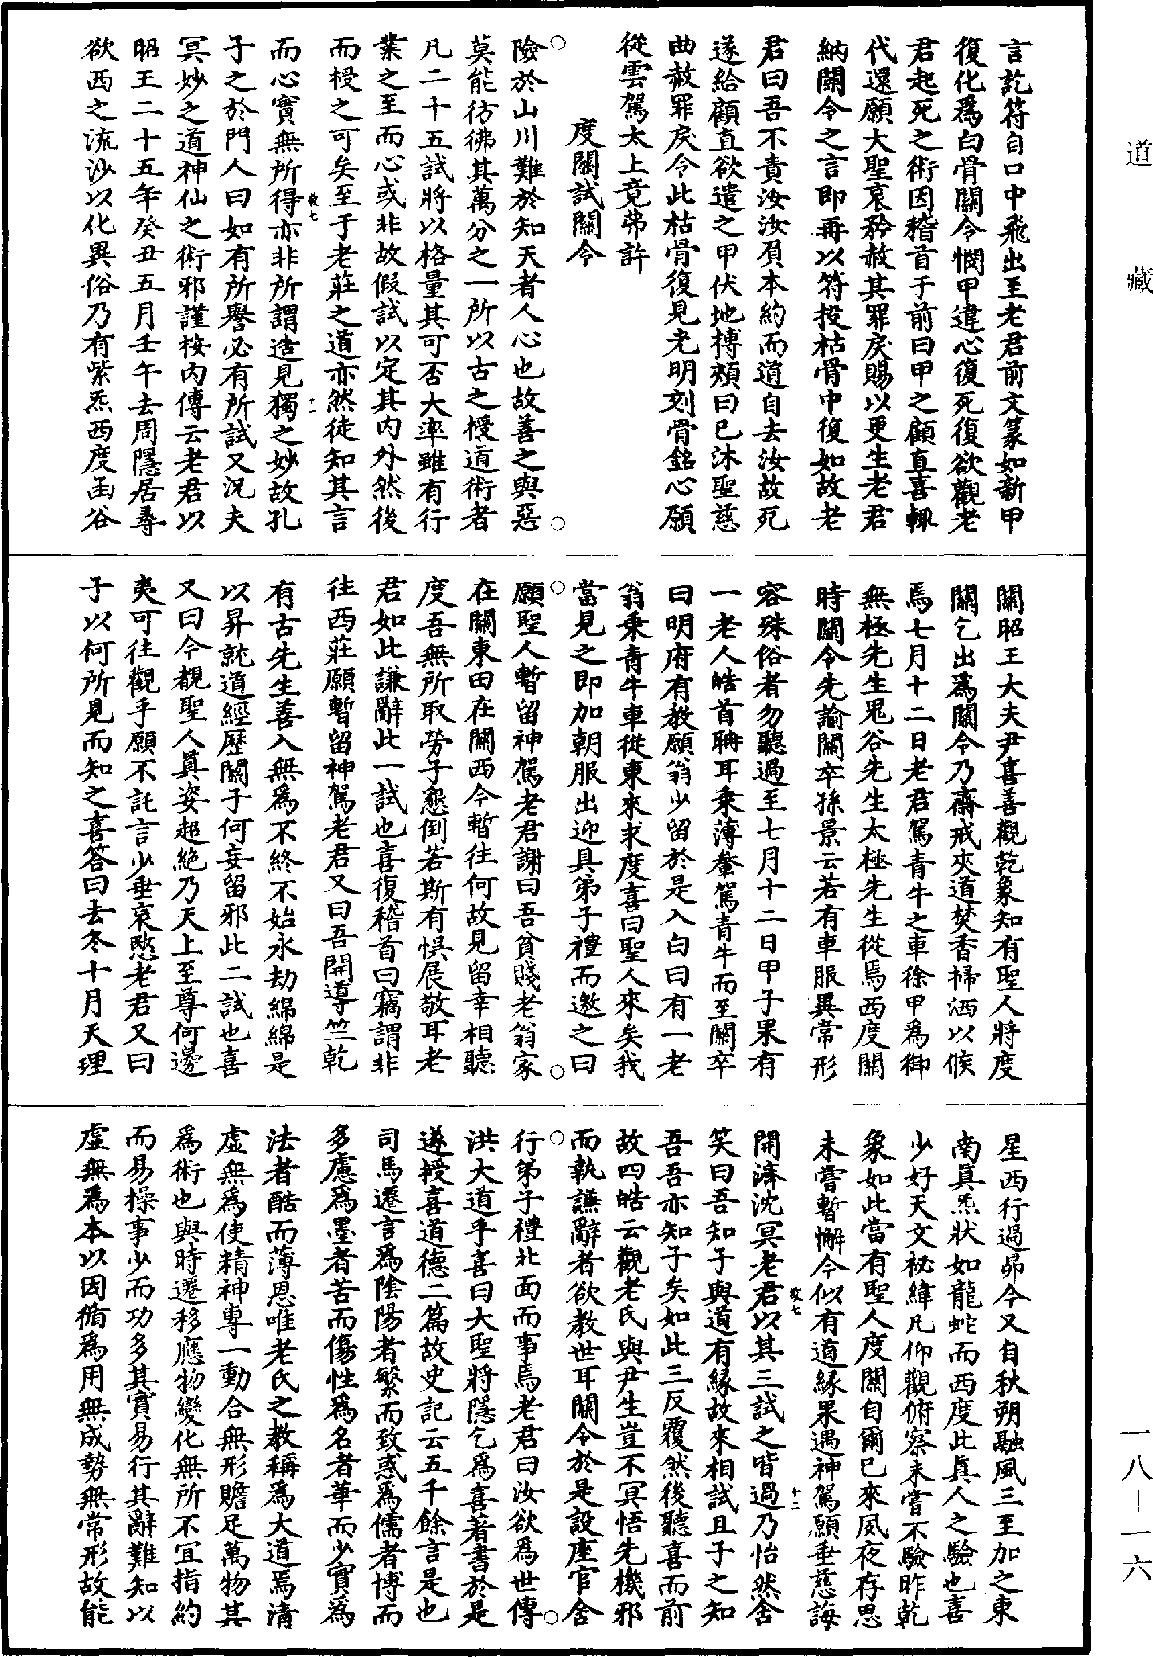 言訖符自口中飛出至老君前文篆如新甲
復化爲白骨關令憫甲違心復死復欲觀老
君起死之術因稽首于前曰甲之顧直喜輒
代還願大聖哀矜赦其罪戾賜以更生老君
納關令之言即再以符投枯骨中復如故老
君曰吾不責汝汝負本約而道自去汝故死
遂給顧直欲遣之甲伏地搏頰曰已沐聖慈
曲赦罪戾令此枯骨復見光明刻骨銘心願
從雲駕太上竟弗許
度關試關令
險於山川難於知天者人心也故善之與惡
莫能彷彿其萬分之一所以古之授道術者
凡二十五試將以格量其可否大率雖有行
業之至而心或非故假試以定其内外然後
而授之可矣至于老莊之道亦然徒知其言
而心實無所得亦非所謂造見獨之妙故孔
敢七
十一
子之於門人曰如有所譽必有所試又況夫
冥妙之道神仙之術邪謹按内傳云老君以
昭王二十五年癸丑五月壬午去周隱居尋
欲西之流沙以化異俗乃有紫炁西度函谷
關昭王大夫尹喜善觀乾象知有聖人將度
關乞出爲關令乃齋戒夾道焚香掃洒以候
焉七月十二日老君駕青牛之車徐甲爲御
無極先生鬼谷先生太極先生從焉西度關
時關令先諭關卒孫景云若有車服異常形
容殊俗者勿聽過至七月十二日甲子果有
一老人皓首聃耳乘薄軬駕青牛而至關卒
曰明府有教願翁少留於是入白曰有一老
翁乘青牛車從東來求度喜曰聖人來矣我
當見之即加朝服出迎具弟子禮而邀之曰
願聖人暫留神駕老君謝曰吾貧賤老翁家
在關東田在關西今暫往何故見留幸相聽
度吾無所取勞子懇倒若斯有惧展敬耳老
君如此謙辭此一試也喜復稽首曰竊謂非
往西莊願暫留神駕老君又曰吾開導竺乾
有古先生善入無爲不終不始永劫綿綿是
以昇就道經歷關子何妄留邪此二試也喜
又曰今覩聖人真姿超絶乃天上至尊何邊
夷可往觀乎願不託言少垂哀愍老君又曰
子以何所見而知之喜答曰去冬十月天理
星西行過昴今又自秋朔融風三至加之東
南真炁狀如龍蛇而西度此真人之驗也喜
少好天文祕緯凡仰觀俯察未嘗不驗昨乾
象如此當有聖人度關自爾已來夙夜存思
未嘗暫懈今似有道緣果遇神駕願垂慈誨
開濟沈冥老君以其三試之皆過乃怡然含
敢七
十二
笑曰吾知子與道有緣故來相試且子之知
吾吾亦知子矣如此三反覆然後聽喜而前
故四皓云觀老氏與尹生豈不冥悟先機邪
而執謙辭者欲教世耳關令於是設座官舍
行弟子禮北面而事焉老君曰汝欲爲世傳
洪大道乎喜曰大聖將隱乞爲喜著書於是
遂授喜道德二篇故史記云五千餘言是也
司馬遷言爲陰陽者繁而致惑爲儒者博而
多慮爲墨者苦而傷性爲名者華而少實爲
法者酷而薄恩唯老氏之教稱爲大道焉清
虛無爲使精神專一動合無形贍足萬物其
爲術也與時遷移應物變化無所不宜指約
而易操事少而功多其實易行其辭難知以
虛無爲本以因循爲用無成勢無常形故能
道藏
一八－一六